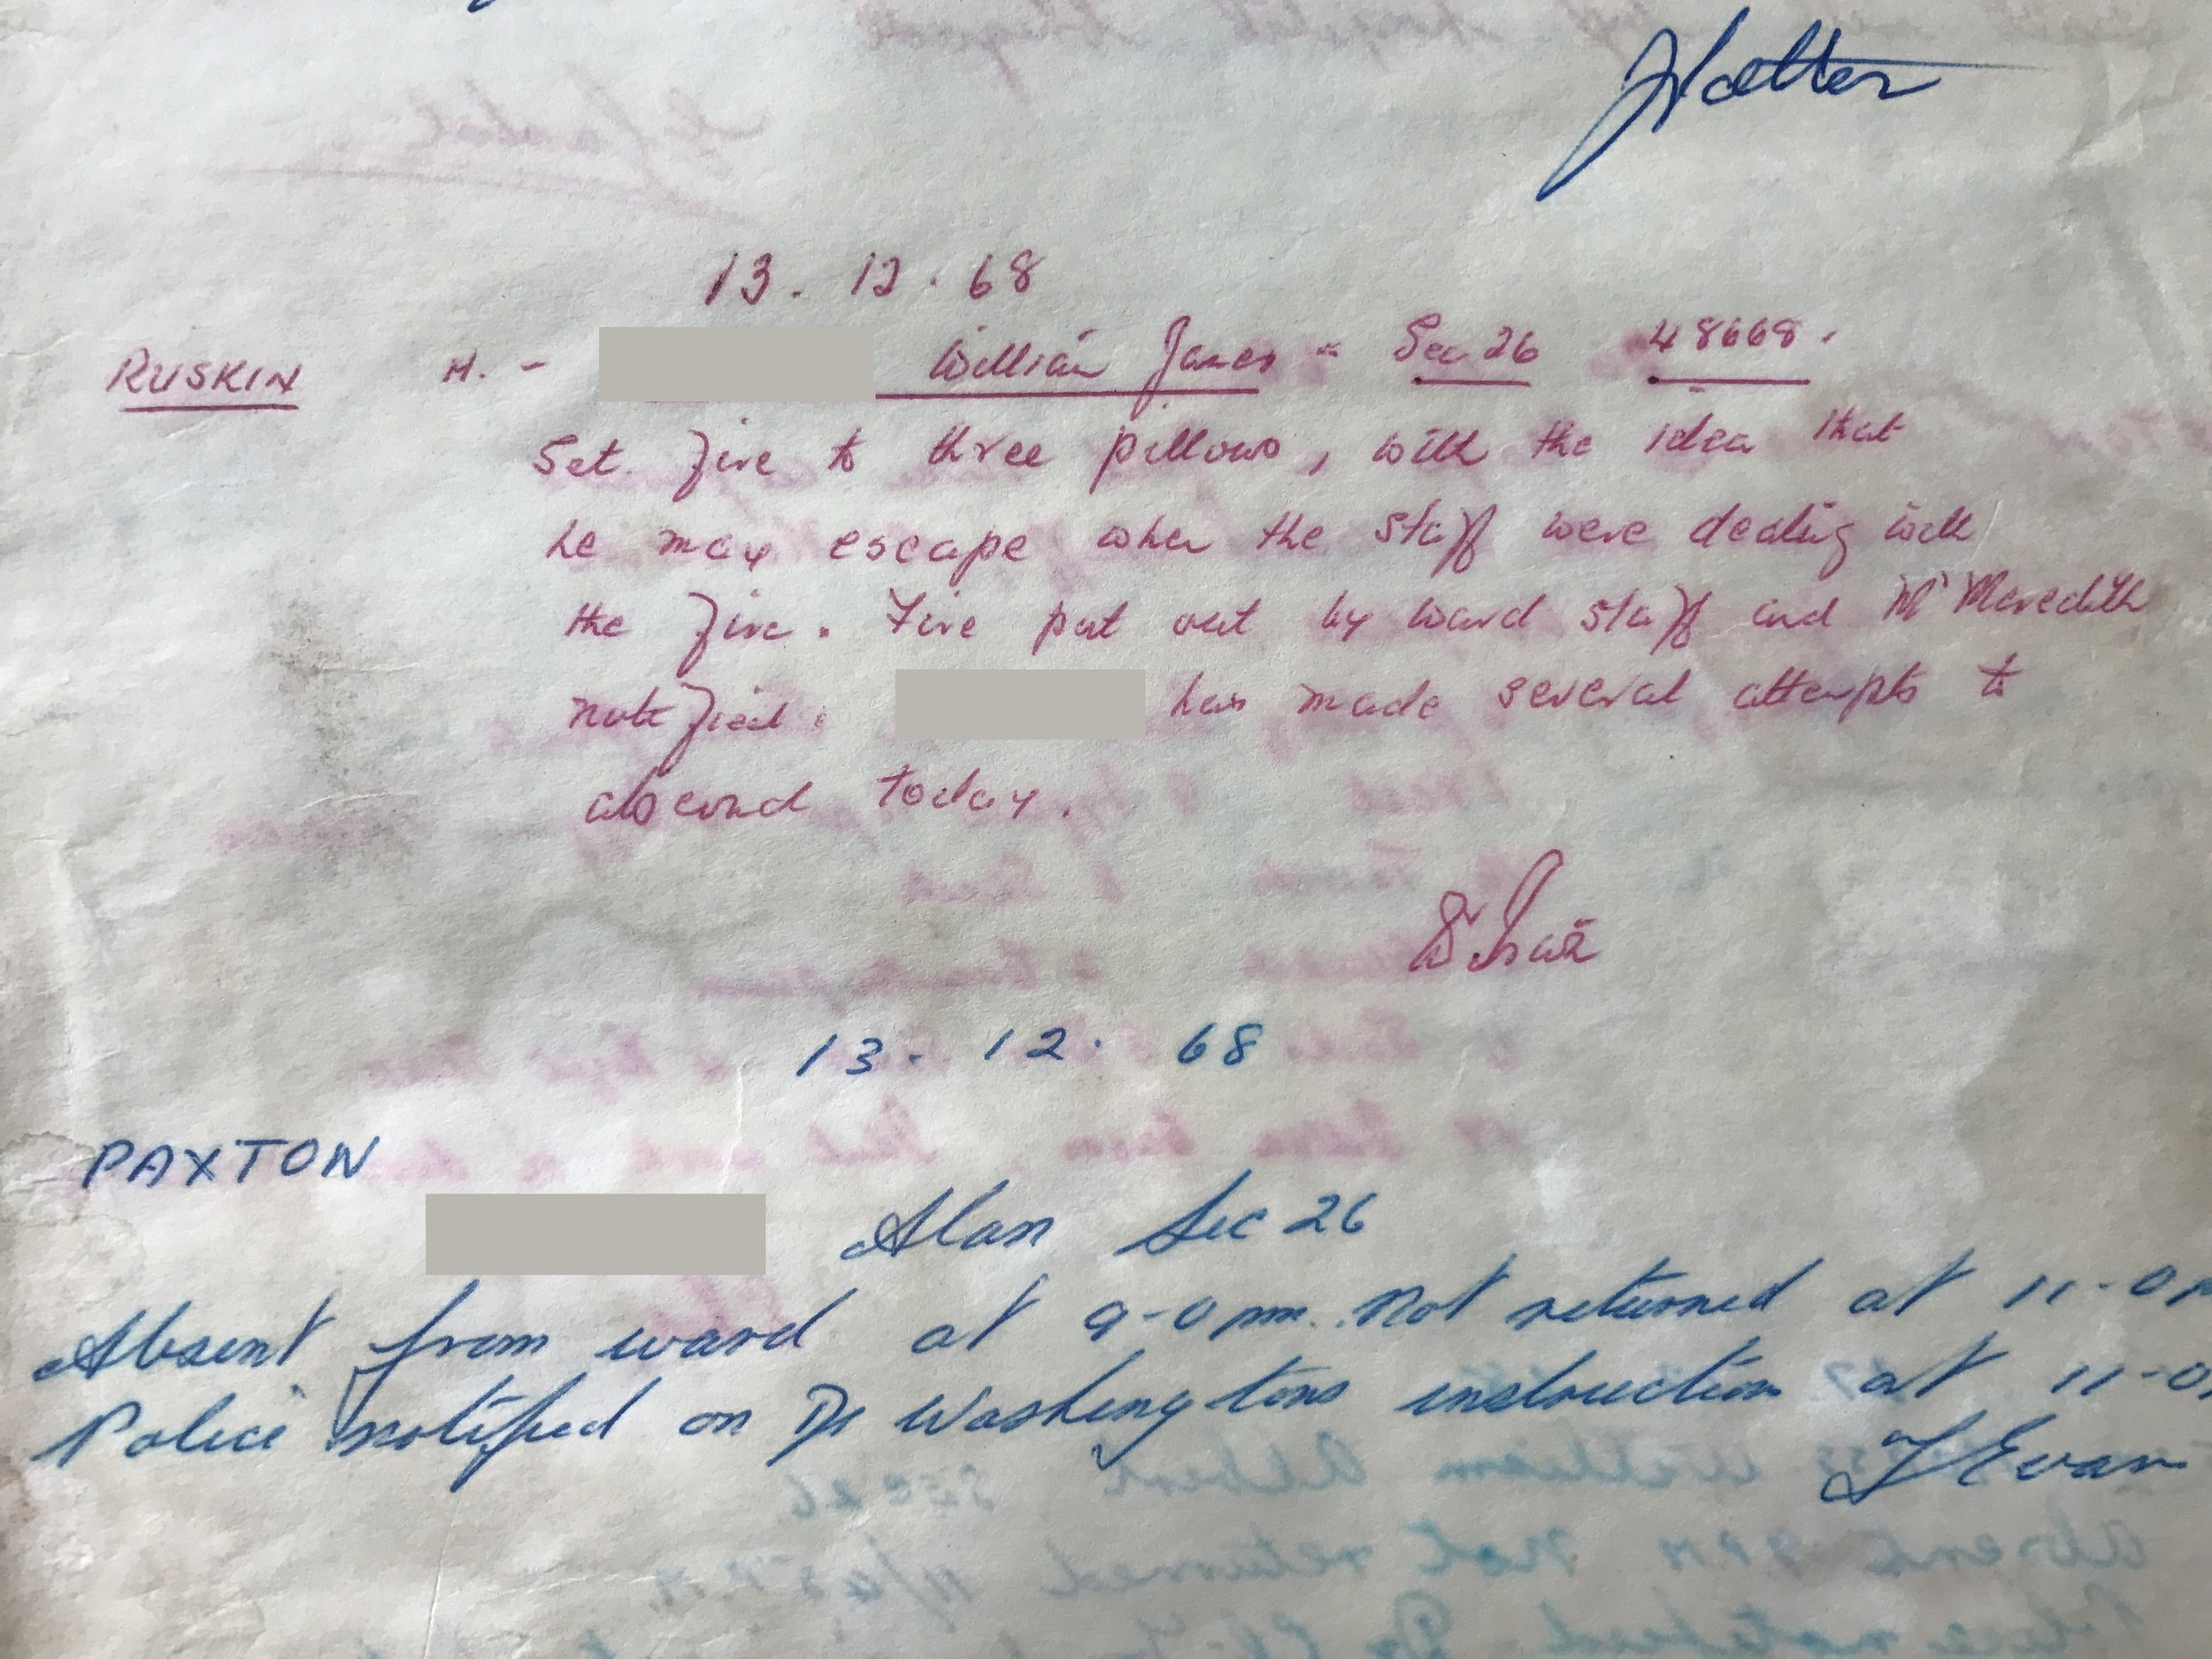 13 . 12 . 68
RUSKIN M. - William James - Sec 26 48668.
Set fire to three pillows, with the idea that
he may escape when the staff were dealing with
the fire. Fire put out by ward staff and Mr Meredith
notified. has made several attempts to
abscond today.
13 . 12 . 68
PAXTON
Alan Sec 26
Absent from ward at 9-0 pm. Not returned at 11-0 p
Police notified on Dr Washingtons instruction at 11-0
Evan